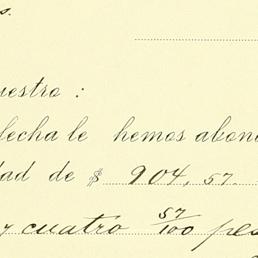 s.
uestro :
fecha le hemos abon
dad de $ 904,57.
y cuatro 57/100 pes